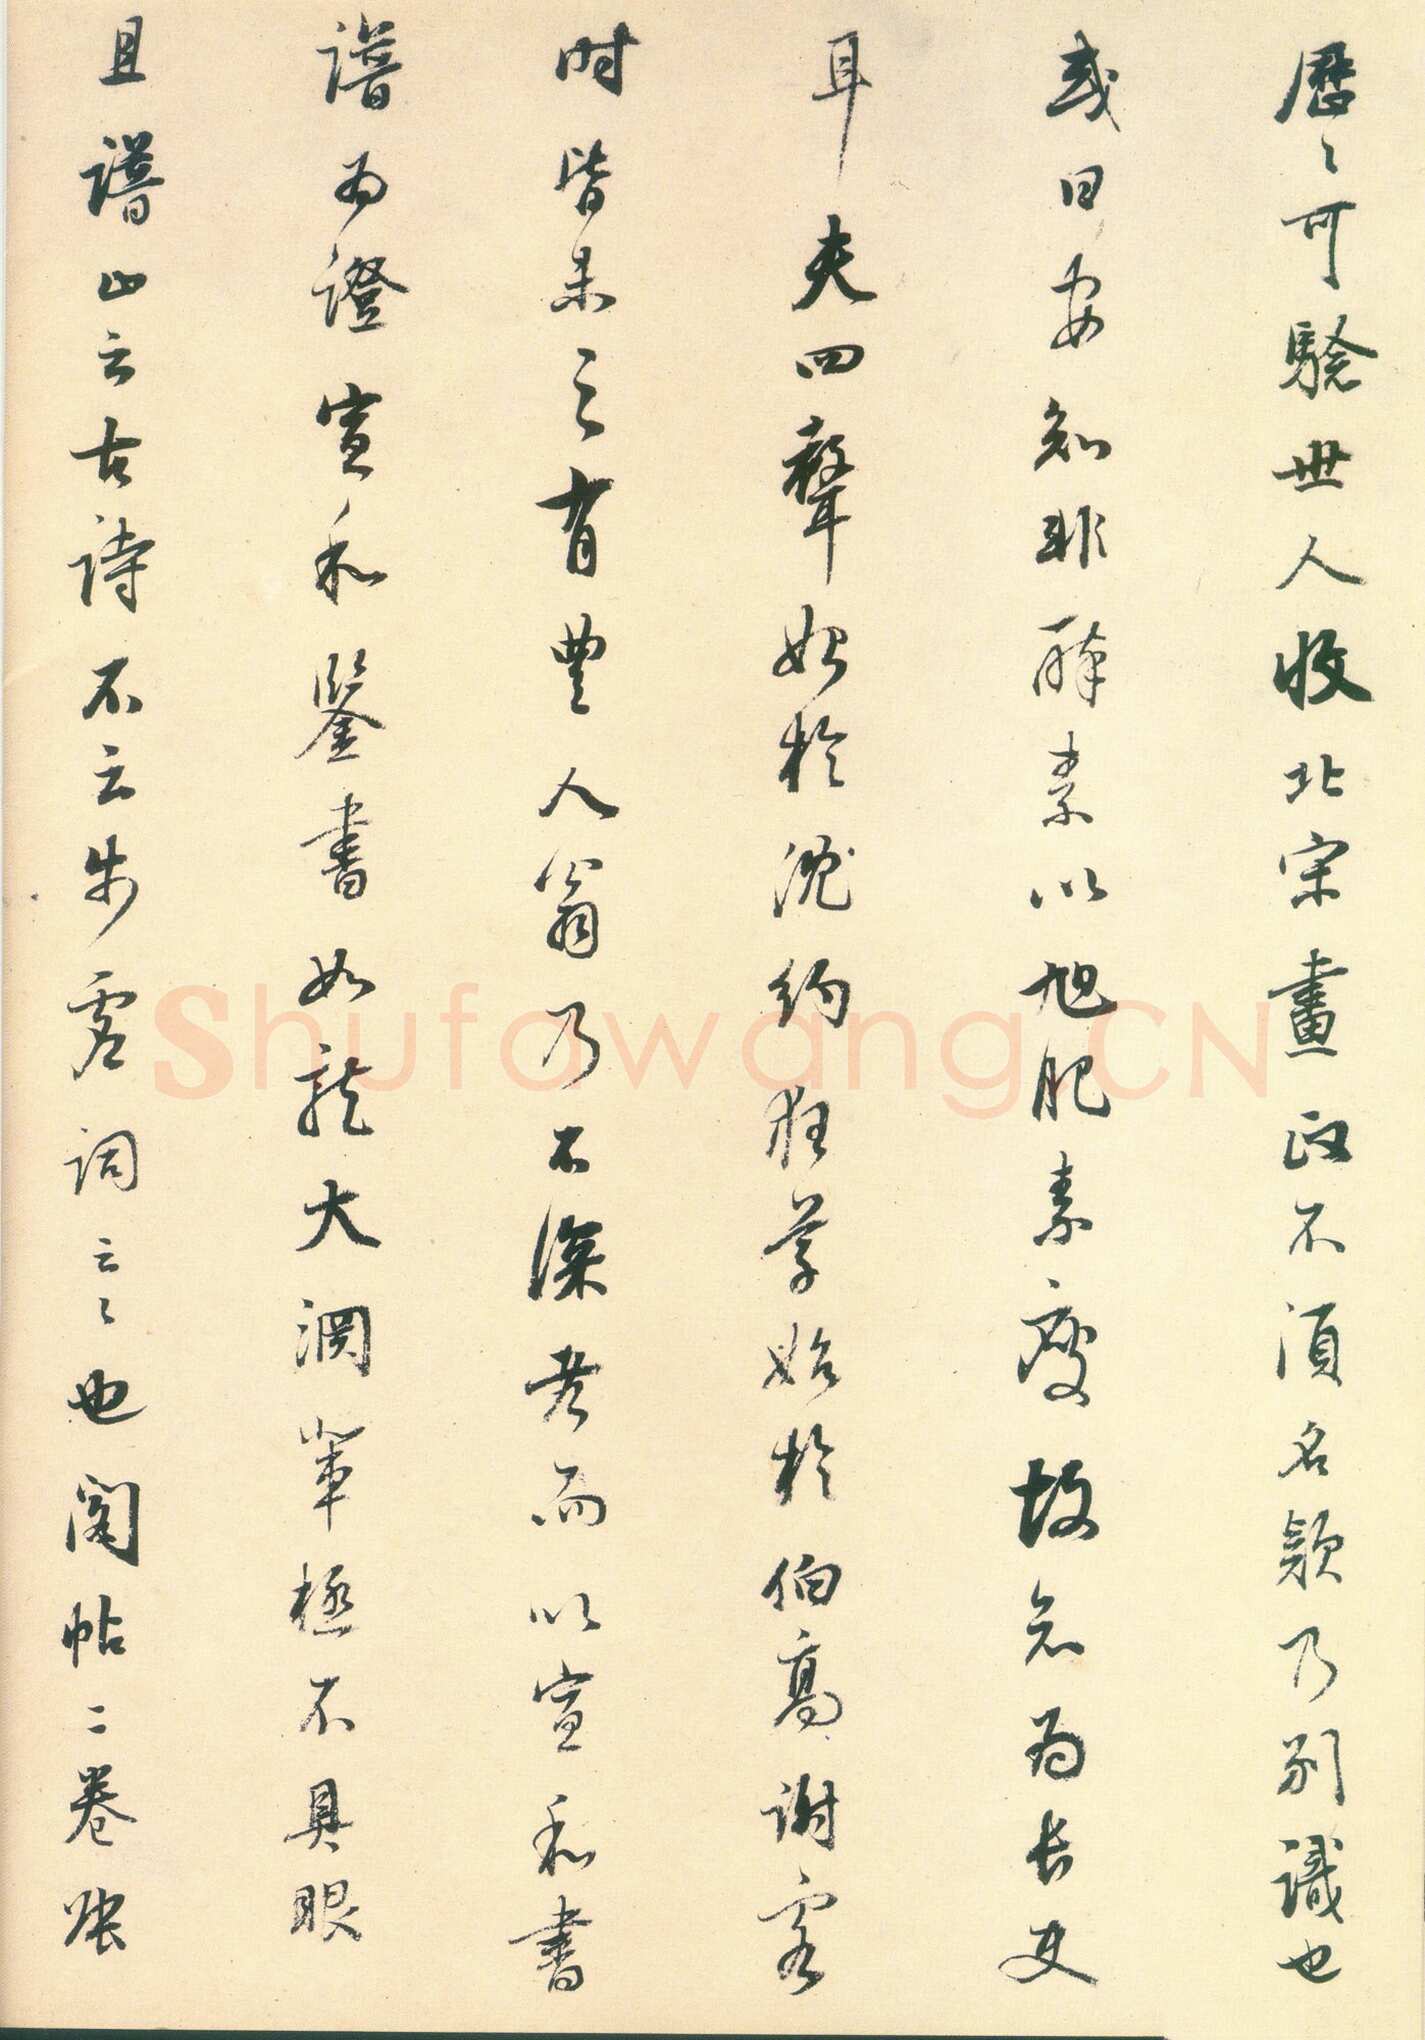 歷々可驗世人收北宋畫政不須名款乃別識也
或曰安知非醉素以旭肥素瘦故知為長史
耳夫四聲始於沈約狂草始於伯高謝客
時皆未之有豐人翁乃不深考而以宣和書
譜為證宣和鑒書如龍大淵輩極不具眼
且譜止云古詩不云步虛詞云々也閣帖二卷張
Shufawang.CN